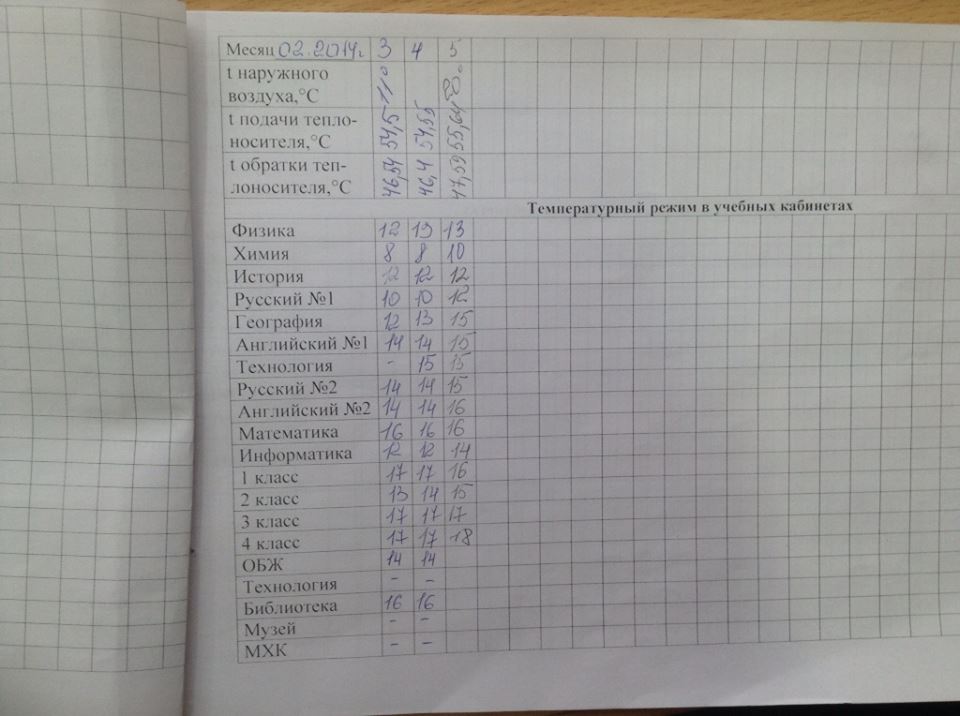 Месяц 02.2014г. 3 4 5
t наружного
воздуха,°C 11° 20°
t подачи тепло-
носителя,°C 54,5 54,55 55,64
t обратки теп-
лоносителя,°C 46,54 46,4 47,59
Температурный режим в учебных кабинетах
Физика 12 13 13
Химия 8 8 10
История 12 12 12
Русский №1 10 10 12
География 12 13 15
Английский №1 14 14 15
Технология - 15 15
Русский №2 14 14 15
Английский №2 14 14 16
Математика 16 16 16
Информатика 12 12 14
1 класс 17 17 16
2 класс 13 14 15
3 класс 17 17 17
4 класс 17 17 18
ОБЖ 14 14
Технология - -
Библиотека 16 16
Музей - -
МХК - -